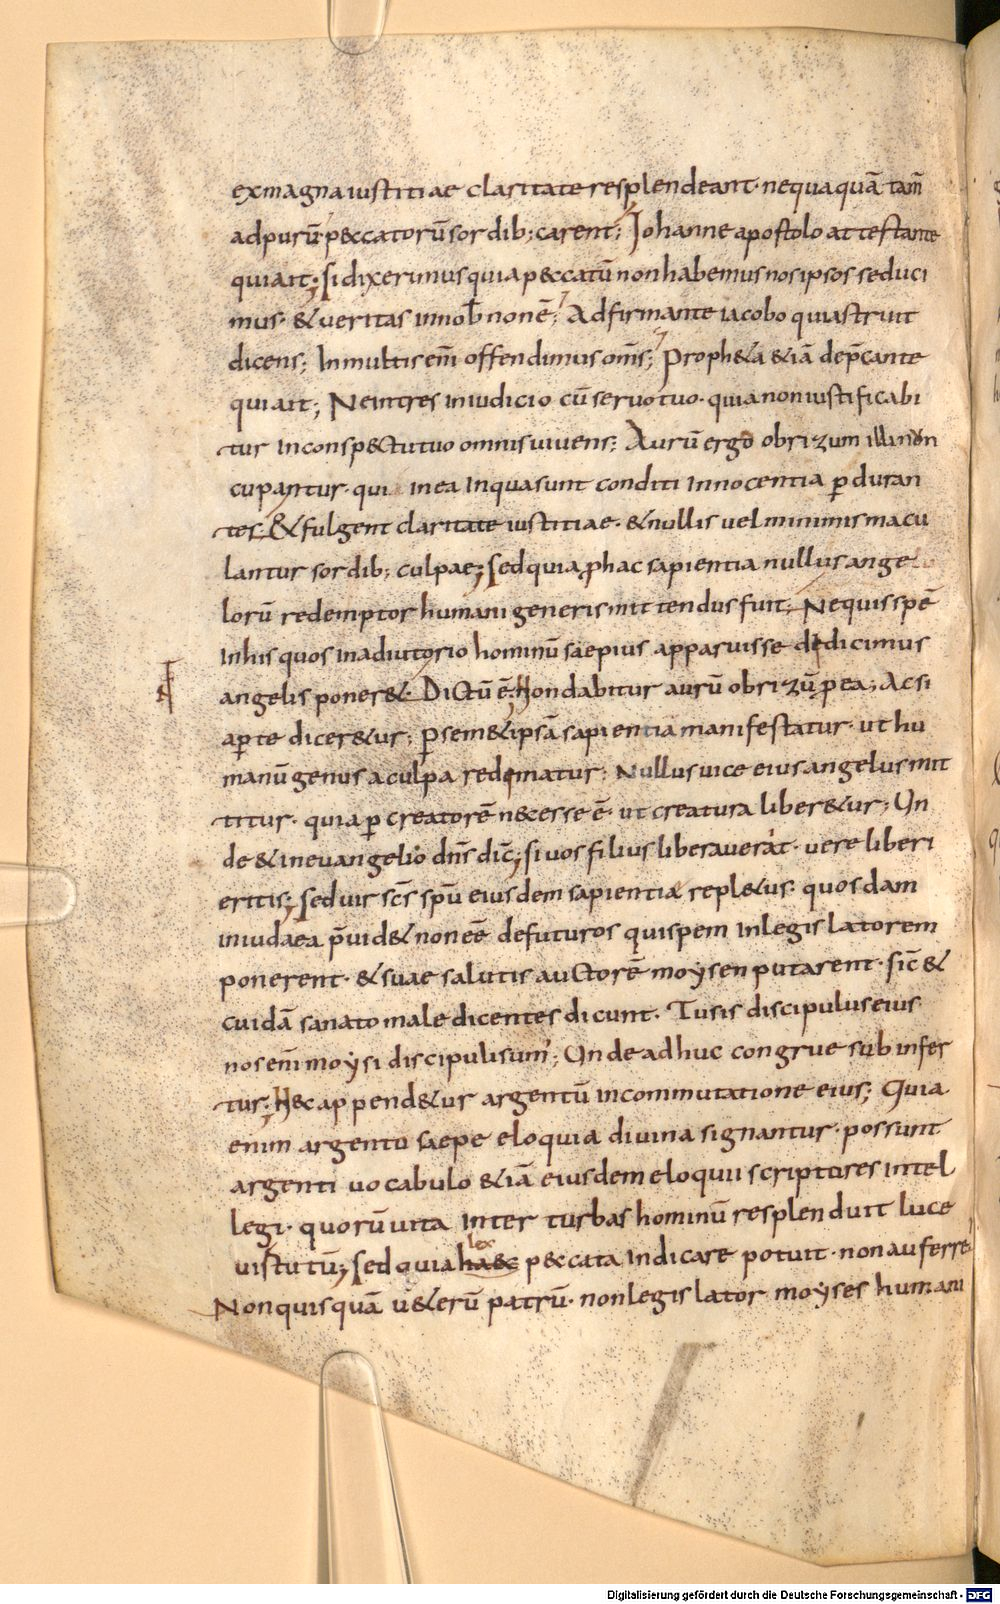 ex magna iustitiae claritate resplendeant· nequaquā tam̄
ad purū p&ccatorū sordib; carent; Iohanne apostolo attestante
qui ait; Si dixerimus quia p&ccatū non habemus nos ipsos seduci
mus· & ueritas in nob̄ non ē; Adfirmante iacobo qui astruit
dicens; In multis em̄ offendimus om̄s; Proph&a &iā dep̄cante
qui ait; Ne intres in iudicio cū seruo tuo· quia non iustificabi
tur in conspectu tuo omnis uiuens; Aurū ergo obrizum illi non
cupantur· qui in ea in qua sunt conditi innocentia ꝑduran
tes & fulgent claritate iustitiae· & nullis uel minimis macu
lantur sordib; culpae; Sed quia ꝓ hac sapientia nullus ange
lorū redemptor humani generis mittendus fuit; Ne quis spē
In his quos in adiutorio hominū saepius apparuisse dedicimus
angelis poner&· Dictū ē; Non dabitur aurū obrizū ꝓ ea; Ac si
aꝑte dicer&ur; ꝑ sem&ipsā sapientia manifestatur· ut hu
manū genus a culpa redematur; Nullus uice eius angelus mit
titur· quia ꝑ creatorē necesse ē· ut creatura liber&ur; Un
de & in euangelio dn̄s dic̄; Si uos filius liberauerat· uere liberi
eritis; Sed uir sc̄s sp̄u eiusdem sapientiae repl&us· quosdam
in iudaea p̄uid& non eē defuturos qui spem in legis latorem
ponerent· & suae salutis auctorē moysen putarent· sic̄ &
cuidā sanato maledicentes dicunt· Tu sis discipulus eius
nos em̄ moysi discipuli sum'; Unde adhuc congrue sub infer
tur; Nec append&ur argentū in commutatione eius; Quia
enim argento saepe eloquia diuina signantur· possunt
argenti uocabulo &iā eiusdem eloquii scriptores intel
legi· quorū uita inter turbas hominū resplenduit luce
uirtutū; Sed quia haec lex p&cata indicare potuit· non auferre
Non quisquā u&erū patrū· non legis lator moyses humani
Digitalisierung gefördert durch die Deutsche Forschungsgemeinschaft - DFG